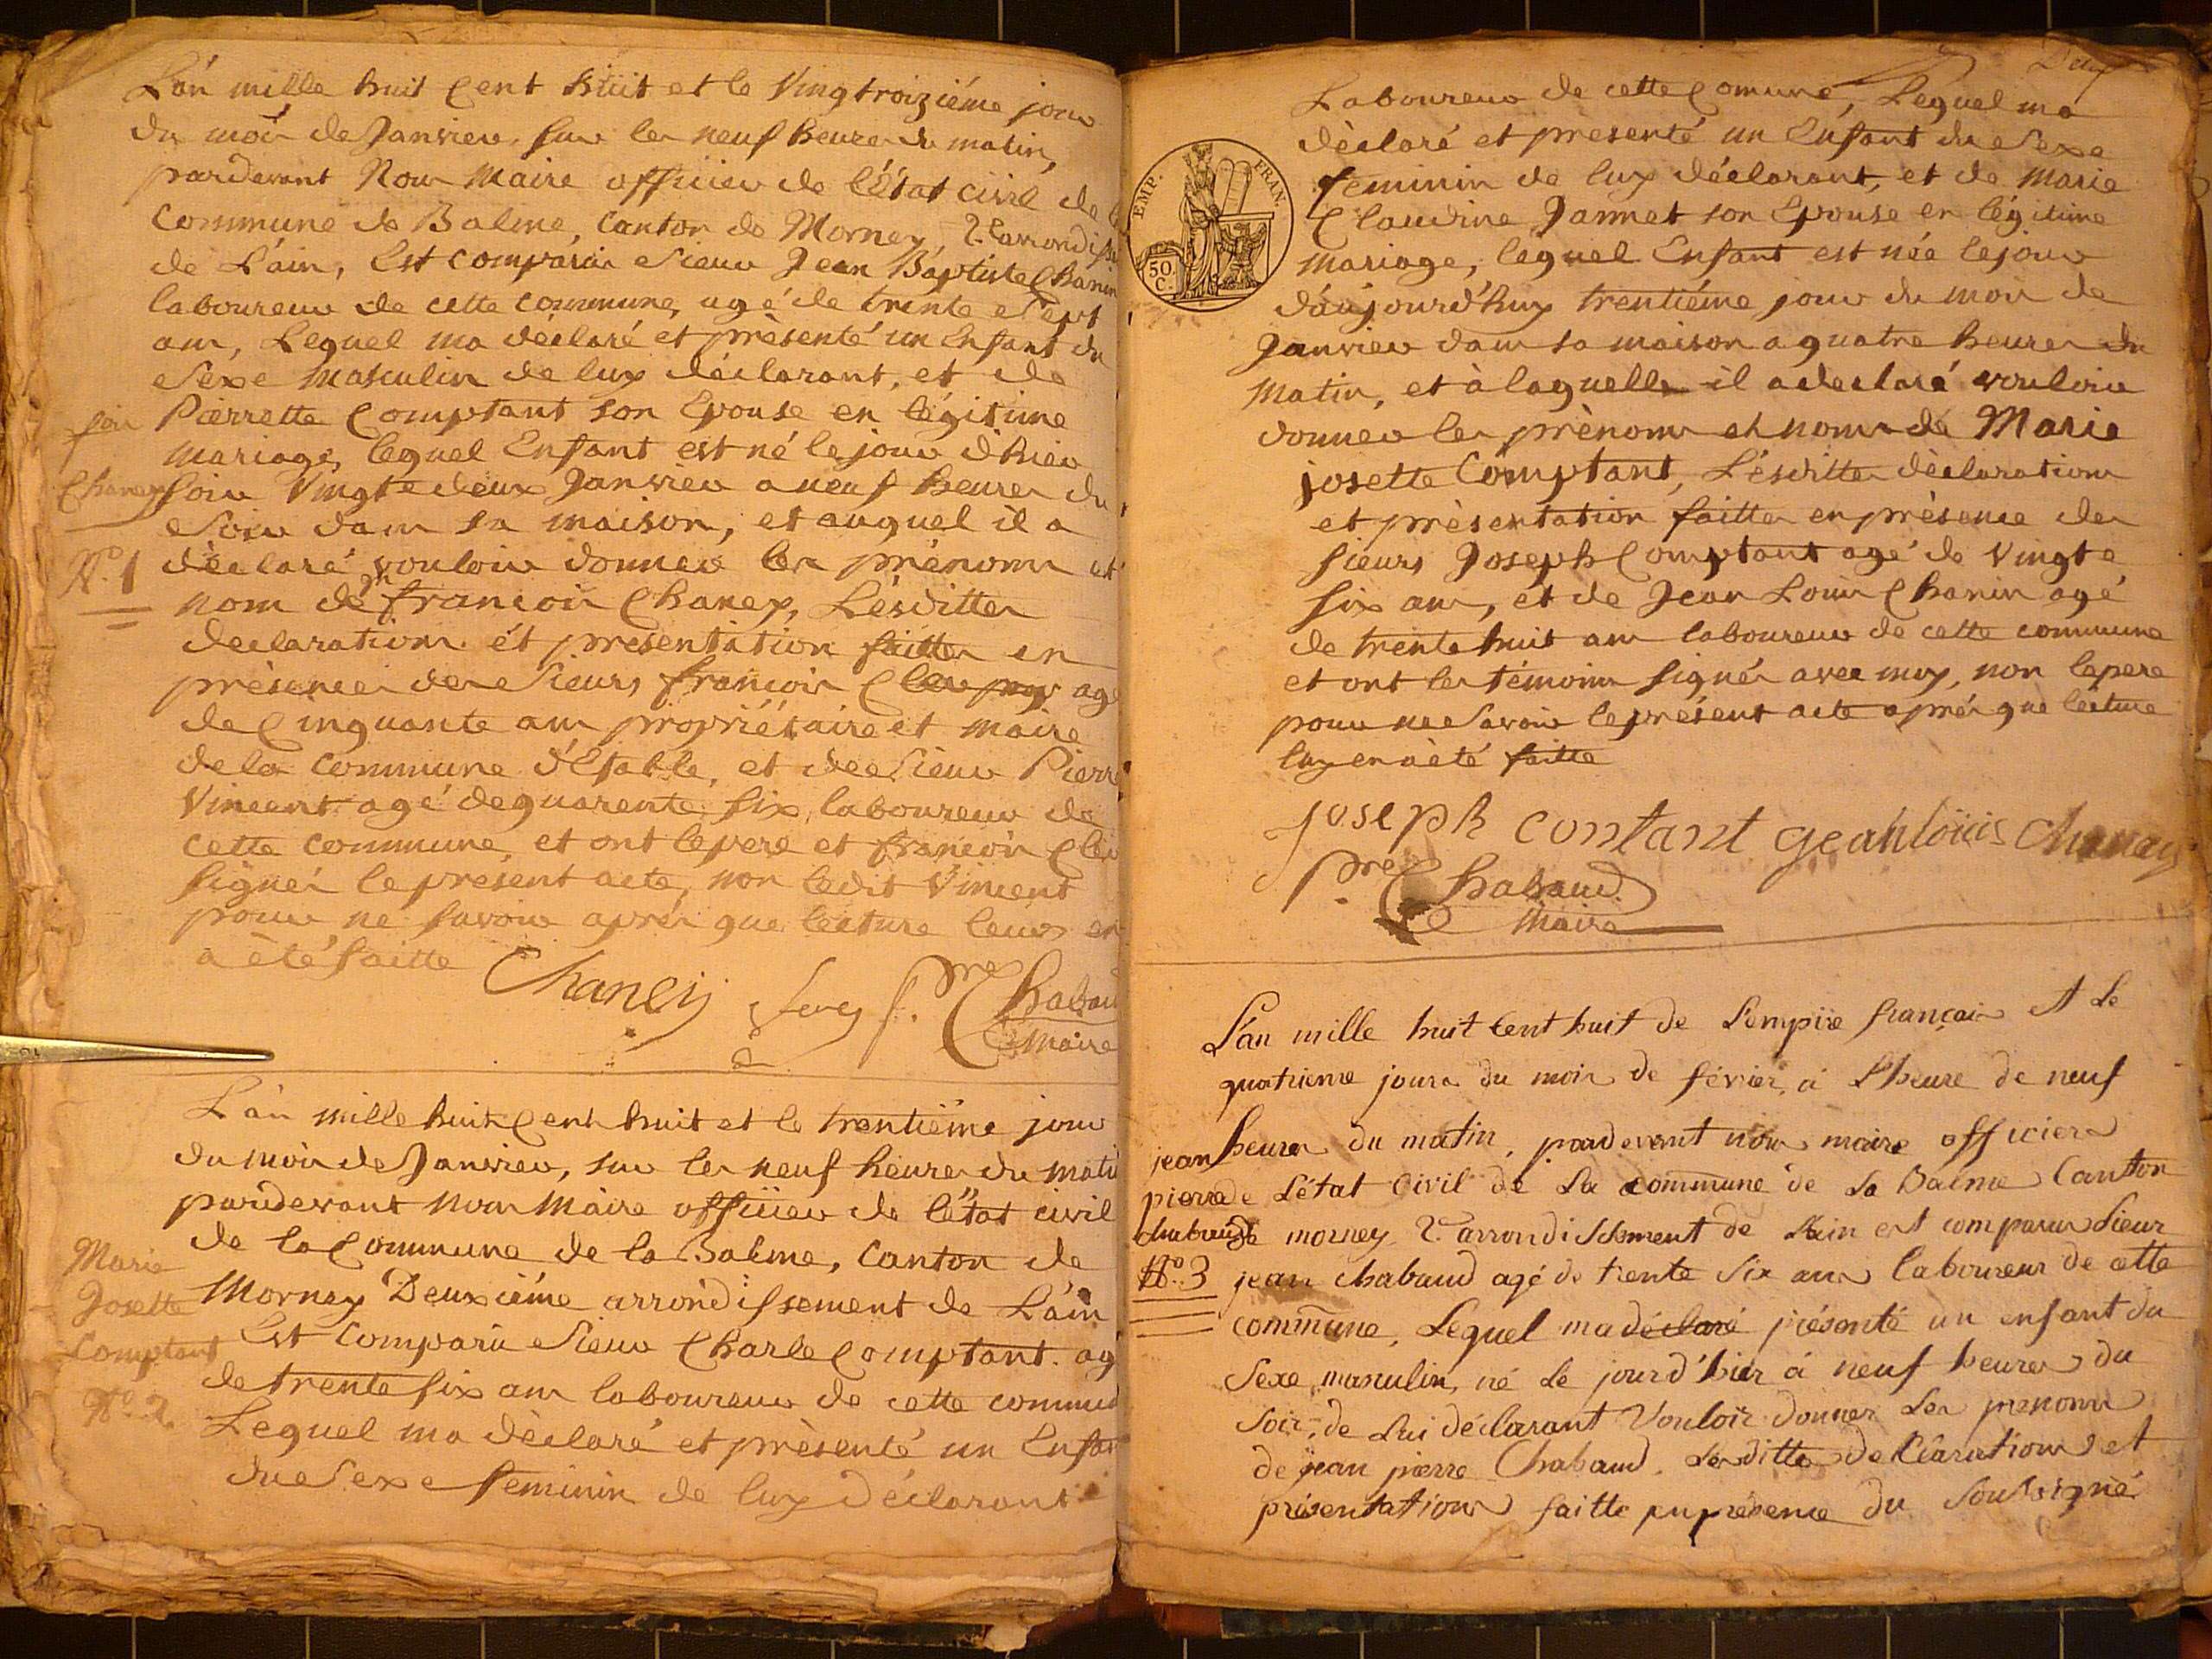 L'an mille huit Cent huit et le Vingtroiziéme jour
du mois de Janvier, sur les neuf heures du matin,
pardevant Nous Maire officier de l'État civil de
Commune de Balme, Canton de Mornay, 2.e arrondisse
de L'ain, Est comparu Sieur Jean Baptiste Chanin
laboureur de cette commune, agé de trente Sept
ans, Lequel ma déclaré et présenté un Enfant du
Sexe Masculin de luy déclarant, et de
Pierrette Comptant son Epouse en légitime
Mariage, lequel Enfant est né le jour d'hier
Soir Vingte deux Janvier a neuf heures du
Soir dans sa maison, et auquel il a
déclaré vouloir donner les prénoms et
nom de françois Chaney, Lésdittes
declarations et presentation faittes en
présences des Sieurs françois age
de Cinquante ans propriétaire et maire
de la Commune d'Etable, et de Sieur Pierre
Vincent agé de quarente six, laboureur de
cette commune, et ont le pere et françois
signés le présent acte, non ledit Vincent
pour ne savoir aprés que lecture leurs en
a été faitte
Chaney
N.o 1
Chaney
P.re Chabaud
Maire
L'an mille huit Cent huit et le trentiéme jour
du mois de Janvier, sur les neuf heures du mati
pardevant nous Maire officier de l'état civil
de la Commune de la Balme, Canton de
Mornay Deuxiéme arrondissement de L'ain
Est Comparu Sieur Charle Comptant ag
de trente six ans laboureur de cette commu
Lequel ma déclaré et présenté un Enfan
du Sexe feminin de luy déclarant
Marie
Josette
Comptant
N.o 2
Deux
Laboureur de cette Comune, Lequel ma
déclaré et presenté un Enfant du Sexe
feminin de luy déclarant, et de Marie
Claudine Jannet son Epouse en légitime
Mariage, lequel Enfant est née le jour
d'aujourd'huy trentiéme jour du mois de
Janvier dans sa maison a quatre heures du
Matin, et à laquelle il a declaré vouloir
donner les prénoms et noms de Marie
josette Comptant, Lésdittes déclarations
et présentation faittes en présence des
sieurs Joseph Comptant agé de Vingte
six ans, et de Jean Louis Chanin agé
de trente huit ans laboureur de cette commune
et ont les témoins signés avec moy, non le pere
pour ne Savoir le présent acte aprés que lecture
luy en a été faitte
EMP. FRAN.
50
C.
joseph contant geanloüis Chaney
P.re Chabaud
Maire
L'an mille huit Cent huit de L'empire français et Le
quatrieme jours du mois de févier, a L'heure de neuf
heures du matin, pardevant nous maire officiers
de L'état Civil de La commune de La Balme Canton
de mornay 2.e arrondissement de L'ain est comparu Sieur
jean Chabaud agé de trente Six ans laboureur de cette
commune, Lequel ma déclaré présenté un enfant du
Sexe masculin, né Le jour d'hier à neuf heures du
Soir, de Lui déclarant Vouloir donner Les prenoms
de jean pierre Chabaud, Les dittes declarations et
présentations faitte en présence du Soussigné
jean
pierre
chabaud
N.o 3